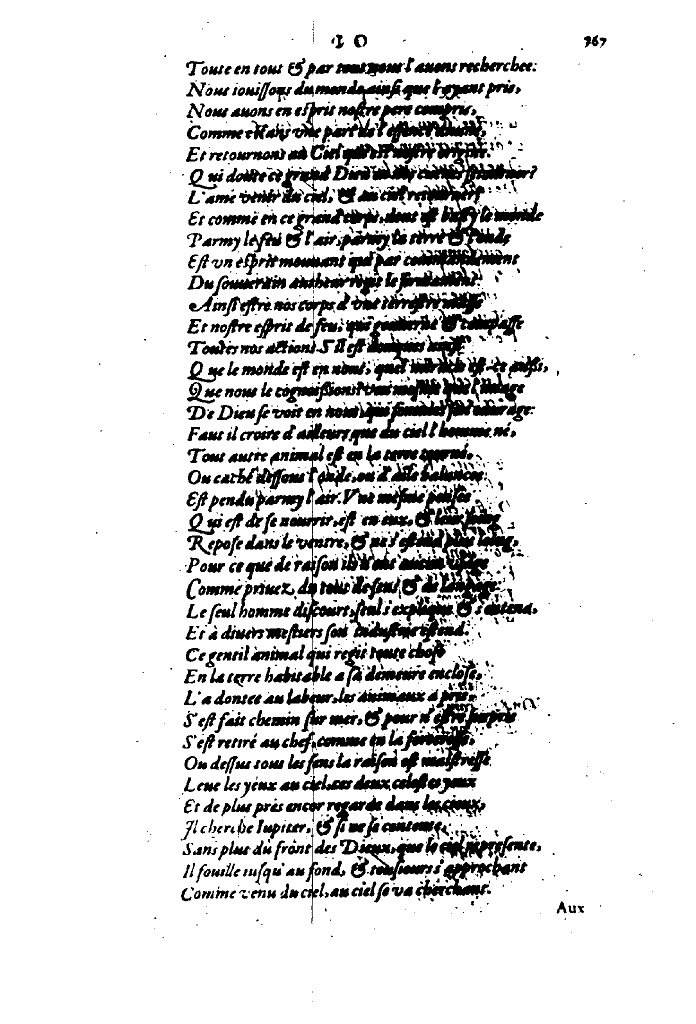 IO 767
Toute en tout & par tout nous l'auons recherchee:
Nous iouissons du monde, ainsi que l'ayant pris,
Nous auons en esprit nostre pere compris,
Comme estans vne part de l'essence diuine,
Et retournons au Ciel qui est nostre origine.
Qui doute ce grand Dieu
L'ame venir du ciel, & au ciel retourner?
Et comme en ce grand corps, dont est basty le monde
Parmy le feu & l'air, parmy la terre & l'onde
Est vn esprit mouuant qui par commandement
Du souuerain autheur regit le firmament:
Ainsi estre nos corps d'vne terrestre masse
Et nostre esprit de feu, qui gouuerne & compasse
Toutes nos actions. S'il est donques ainsi
Que le monde est en nous, quel miracle est-ce aussi,
Que nous le cognoissions? veu mesme que l'image
De Dieu se voit en nous, qui sommes son ouurage:
Faut il croire d'ailleurs que du ciel l'homme né,
Tout autre animal est en la terre tourné,
Ou caché dessous l'onde, ou d'aile balancee
Est pendu parmy l'air. Vne mesme pensee
Qui est de se nourrir, est en eux, & leur soing
Repose dans le ventre, & ne s'estend plus loing,
Pour ce que de raison ils n'ont aucun vsage
Comme priuez du tout de sens & de langage.
Le seul homme discourt, seul s'explique & s'entend,
Et à diuers mestiers son industrie estend.
Ce gentil animal qui regit toute chose
En la terre habitable a sa demeure enclose,
L'a dontee au labeur, les animaux a pris,
S'est fait chemin sur mer, & pour n'estre surpris
S'est retiré au chef, comme en la forteresse,
Ou dessus tous les sens la raison est maistresse
Leue les yeux au ciel, ces deux celestes yeux
Et de plus pres encor regarde dans les cieux,
Il cherche Iupiter, & si ne se contente,
Sans plus du front des Dieux, que le ciel represente,
Il fouille iusqu'au fond, & tousiours s'approchant
Comme venu du ciel, au ciel se va cherchant.
Aux